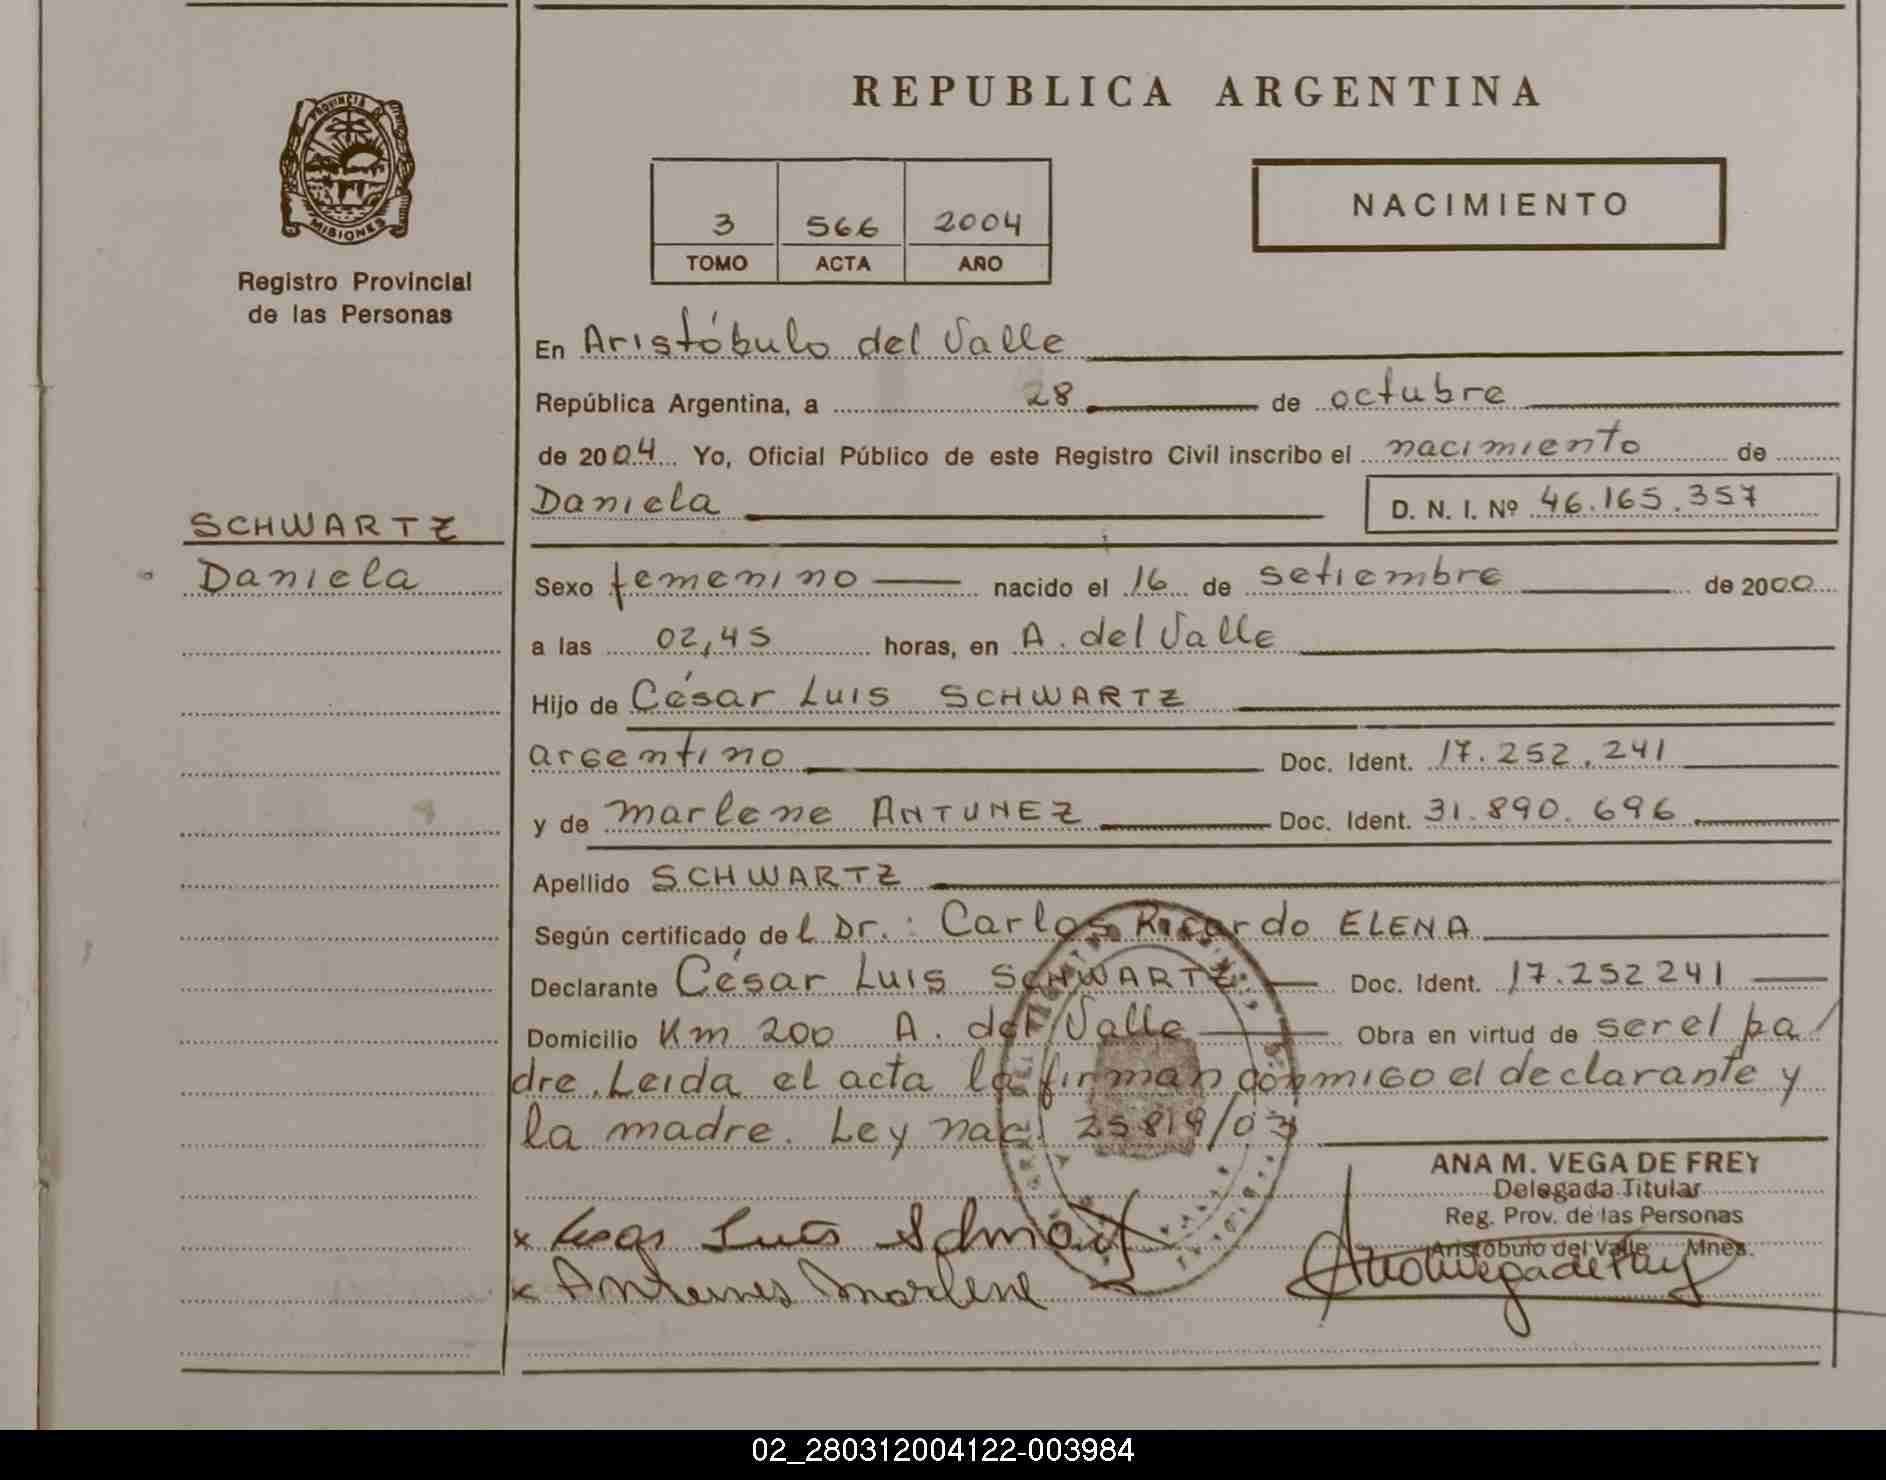 REPUBLICA ARGENTINA
PROVINCIA DE
MISIONES
Registro Provincial
de las Personas
3 566 2004
TOMO ACTA AÑO
NACIMIENTO
En Aristóbulo del Valle
República Argentina, a 28 de octubre
de 2004 Yo, Oficial Público de este Registro Civil inscribo el nacimiento de
Daniela D. N. I. Nº 46.165.357
SCHWARTZ
Daniela
Sexo femenino nacido el 16 de setiembre de 2000
a las 02,45 horas, en A. del Valle
Hijo de César Luis SCHWARTZ
argentino Doc. Ident. 17.252.241
y de Marlene ANTUNEZ Doc. Ident. 31.890.696
Apellido SCHWARTZ
Según certificado del Dr.: Carlos Ricardo ELENA
Declarante César Luis SCHWARTZ Doc. Ident. 17.252241
Domicilio Km 200 A. del Valle Obra en virtud de ser el pa/
dre. Leida el acta la firman conmigo el declarante y
la madre. Ley nac. 25819/03
ANA M. VEGA DE FREY
Delegada Titular
Reg. Prov. de las Personas
Aristóbulo del Valle Mnes.
x Luis
x Antunes Marlene
02_280312004122-003984